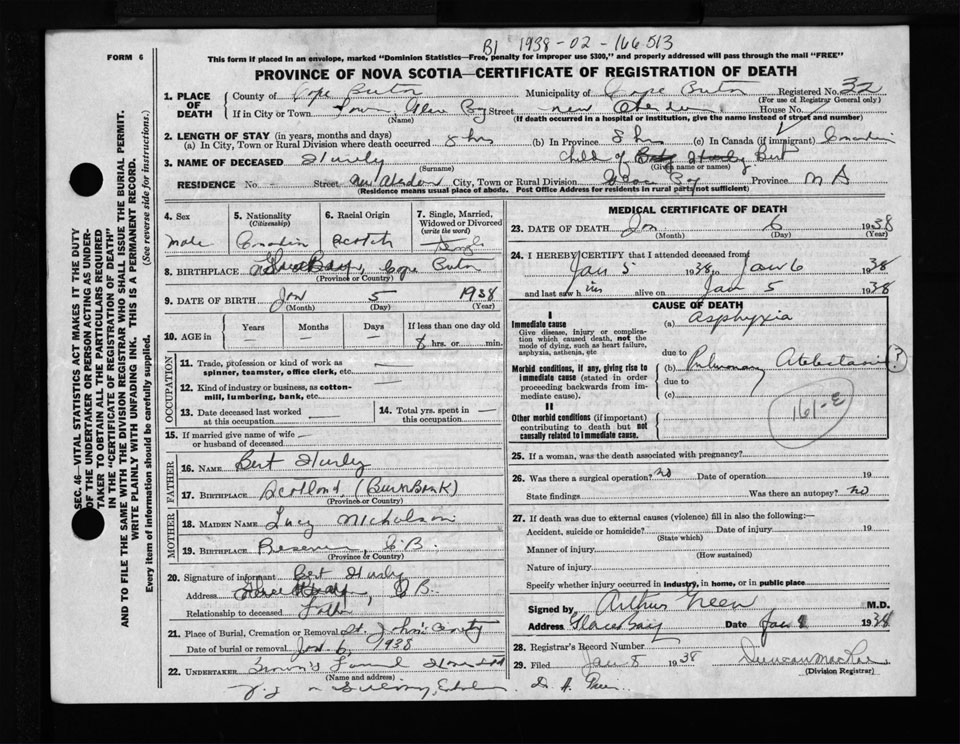 B1 1938-02-166513
FORM 6
This form if placed in an envelope, marked "Dominion Statistics—Free, penalty for improper use $300," and properly addressed will pass through the mail "FREE"
PROVINCE OF NOVA SCOTIA—CERTIFICATE OF REGISTRATION OF DEATH
1. PLACE OF DEATH
County of Cape Breton Municipality of Cape Breton Registered No. 32
(For use of Registrar General only)
If in City or Town Town, Glace Bay Street New Aberdeen House No.
(Name) (If death occurred in a hospital or institution, give the name instead of street and number)
2. LENGTH OF STAY (in years, months and days)
(a) In City, Town or Rural Division where death occurred 8 hrs (b) In Province 8 hrs (c) In Canada (if immigrant) Canadian
3. NAME OF DECEASED Hurly child of Bert
(Surname) (Given name or names)
RESIDENCE No. - Street New Aberdeen City, Town or Rural Division Glace Bay Province N S
(Residence means usual place of abode. Post Office Address for residents in rural parts not sufficient)
4. Sex Male
5. Nationality (Citizenship) Canadian
6. Racial Origin Scotch
7. Single, Married, Widowed or Divorced (write the word) Single
8. BIRTHPLACE Glace Bay, Cape Breton
(Province or Country)
9. DATE OF BIRTH Jan 5 1938
(Month) (Day) (Year)
10. AGE in
Years —
Months —
Days —
If less than one day old
8 hrs. or min.
OCCUPATION
11. Trade, profession or kind of work as spinner, teamster, office clerk, etc. —
12. Kind of industry or business, as cotton-mill, lumbering, bank, etc. —
13. Date deceased last worked at this occupation —
14. Total yrs. spent in this occupation —
15. If married give name of wife or husband of deceased —
FATHER
16. NAME Bert Hurly
17. BIRTHPLACE Scotland, (Burnbank)
(Province or Country)
MOTHER
18. MAIDEN NAME Lucy Nicholson
19. BIRTHPLACE Reserve, C.B.
(Province or Country)
20. Signature of informant Bert Hurly
Address Glace Bay, C B.
Relationship to deceased Father
21. Place of Burial, Cremation or Removal St. John's
Date of burial or removal Jan 6, 1938
22. UNDERTAKER
(Name and address)
MEDICAL CERTIFICATE OF DEATH
23. DATE OF DEATH Jan 6 1938
(Month) (Day) (Year)
24. I HEREBY CERTIFY that I attended deceased from
Jan 5 1938 to Jan 6 1938
and last saw him alive on Jan 5 1938
CAUSE OF DEATH
I
Immediate cause (a) Asphyxia
Give disease, injury or complication which caused death, not the mode of dying, such as heart failure, asphyxia, asthenia, etc
due to
Morbid conditions, if any, giving rise to immediate cause (stated in order proceeding backwards from immediate cause).
(b) Pulmonary Atelectasis ?
due to
(c)
161-E
II
Other morbid conditions (if important) contributing to death but not causally related to immediate cause.
25. If a woman, was the death associated with pregnancy?
26. Was there a surgical operation? No Date of operation 19
State findings Was there an autopsy? no
27. If death was due to external causes (violence) fill in also the following:—
Accident, suicide or homicide? Date of injury 19
(State which)
Manner of injury
(How sustained)
Nature of injury
Specify whether injury occurred in industry, in home, or in public place
Signed by Arthur Green M.D.
Address Glace Bay Date Jan 1938
28. Registrar's Record Number
29. Filed Jan 8 1938 Duncan MacRae
(Division Registrar)
SEC. 46—VITAL STATISTICS ACT MAKES IT THE DUTY
OF THE UNDERTAKER OR PERSON ACTING AS UNDER-
TAKER TO OBTAIN ALL THE PARTICULARS REQUIRED
IN THE "CERTIFICATE OF REGISTRATION OF DEATH"
AND TO FILE THE SAME WITH THE DIVISION REGISTRAR WHO SHALL ISSUE THE BURIAL PERMIT.
WRITE PLAINLY WITH UNFADING INK. THIS IS A PERMANENT RECORD.
(See reverse side for instructions.)
Every item of information should be carefully supplied.